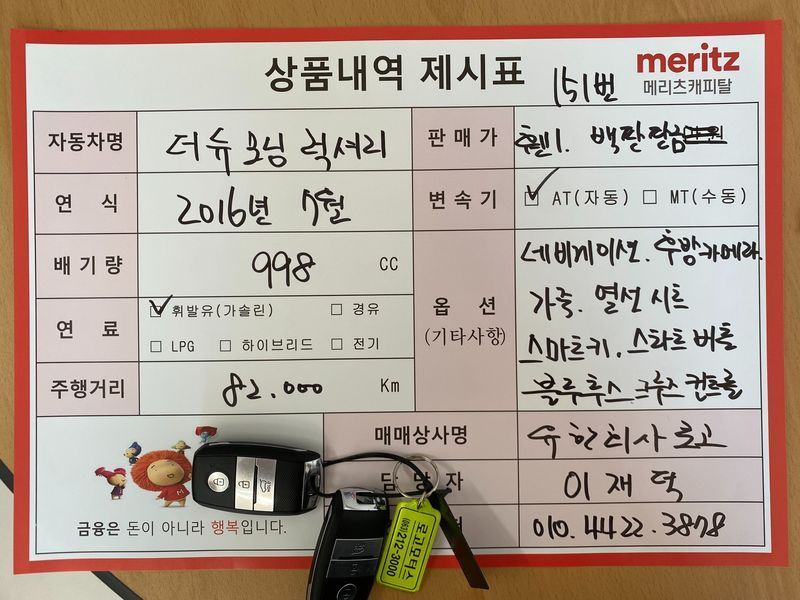 상품내역 제시표
151번
meritz
메리츠캐피탈
자동차명 더뉴모닝 럭셔리
판매가
연 식 2016년 7월
변속기 AT(자동) MT(수동)
배기량 998 CC
옵 션
(기타사항)
네비게이션. 후방카메라.
가죽. 열선시트
스마트키. 스타트버튼
블루투스 크루즈 컨트롤
연 료 휘발유(가솔린) 경유
LPG 하이브리드 전기
주행거리 82.000 Km
매매상사명 유한회사 로고
담당자 이재덕
010.4422.3878
금융은 돈이 아니라 행복입니다.
로고모터스
(063)212-3000